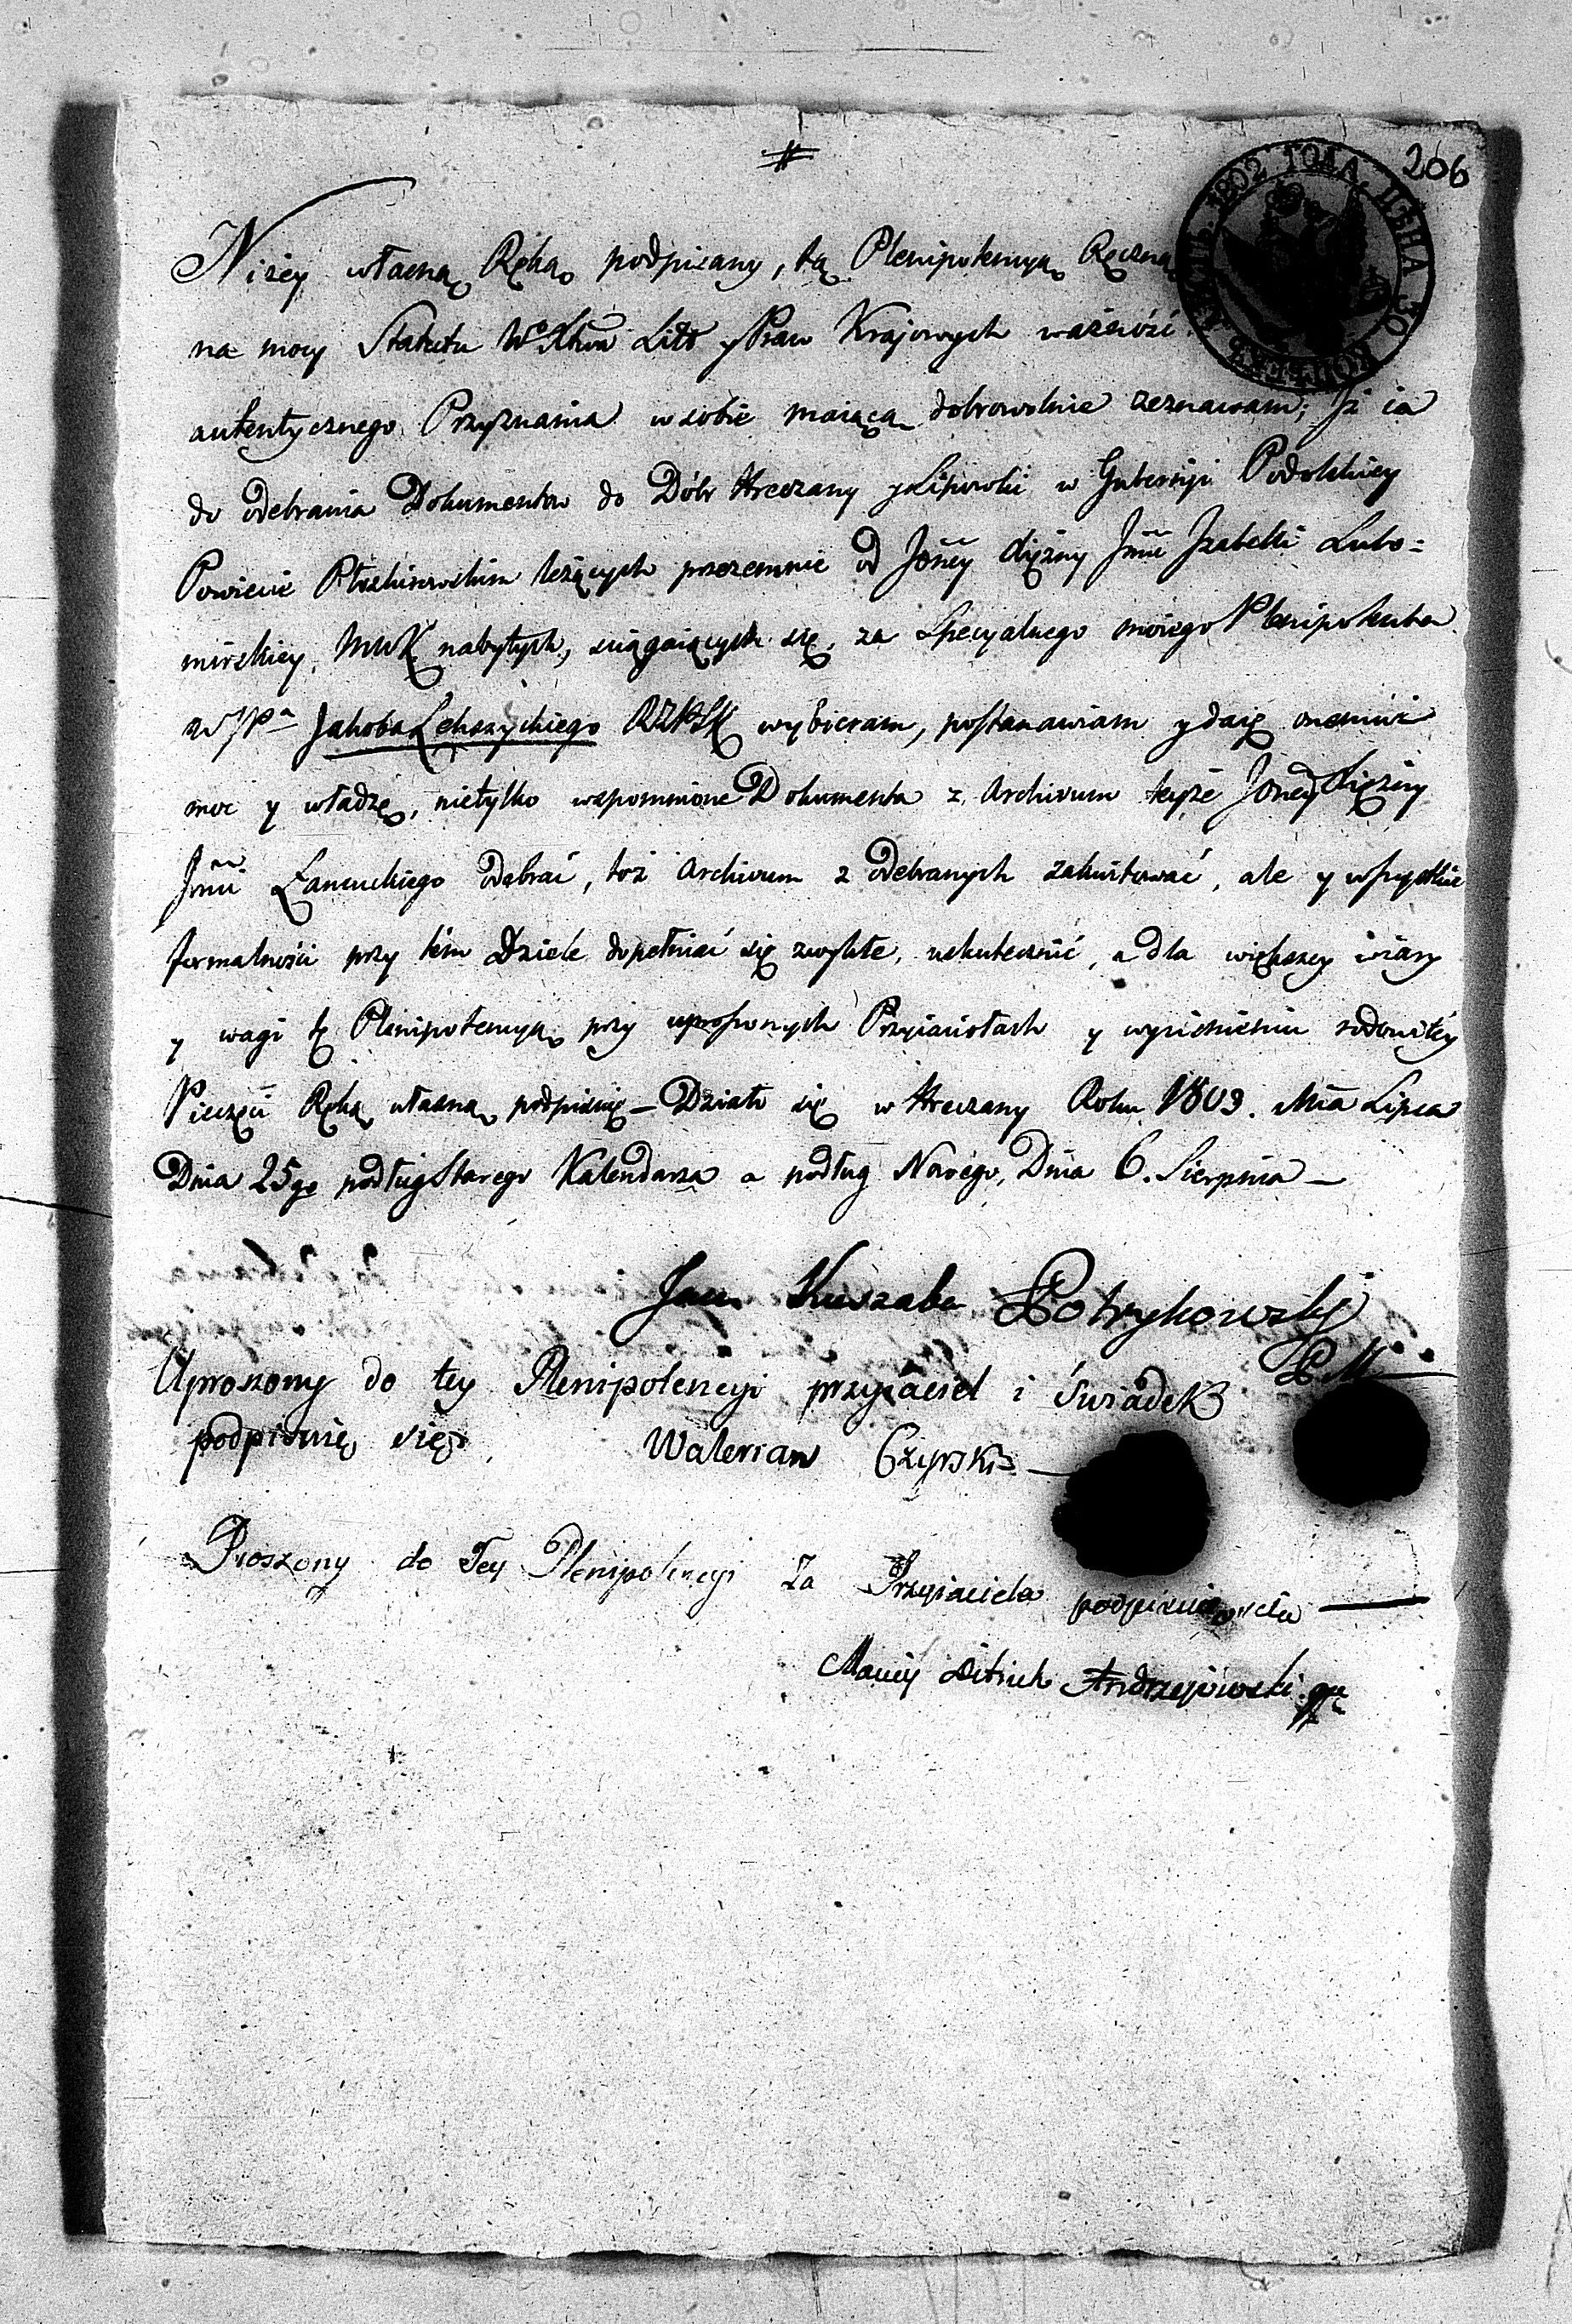 206
1802 ГОДА ЦѢНА 30 КОПѢЕКЪ
Niżey własną Ręką podpisany, tą Plenipotencyą Ręczną
na mocy Statutu Wo Xtwa Litt y Praw Krajowych ważność
autentycznego Przyznania w sobie maiącą dobrowolnie zeznawam; Iż ia
do Odebrania Dokumentow do Dóbr Hreczany y Lipowki w Gubernji Podolskiey
Powiecie Płoskirowskim leżących przezemnie od JOney Xiężny Jmci Izabelli Lubo=
mirskiey, MWK nabytych, sciągaiących się, za Specyalnego moiego Plenipotenta
WJPa Jakoba Lekszyckiego wybieram, postanawiam y daię onemuż
moc y władzę, nietylko wspomnione Dokumenta z Archivum teyże JOney Xiężny
Jmci Łancuckiego Odebrać, toż Archivum z Odebranych zakwitować, ale y wszystkie
formalności przy tém Dziele dopełniać się zwykłe, uskutecznić, a dla większey wiary
y wagi tę Plenipotencyą przy uproszonych Przyiaciołach y wyciśnieniu rodowitéy
Pieczęci Ręką własną podpisuię – Działo się w Hreczany Roku 1803. Mca Lipca
Dnia 25go podług Starego Kalendarza a podług Nowego, Dnia 6. Sierpnia –
Jan Kuszaba Potrykowski
P.M.
Uproszony do tey Plenipotencyi przyiaciel i świadek
podpisuię się. Walerian Czyrski
Proszony do Tey Plenipotencyi za Przyiaciela podpisuie się
Maciey Ditrich Andrzejowski